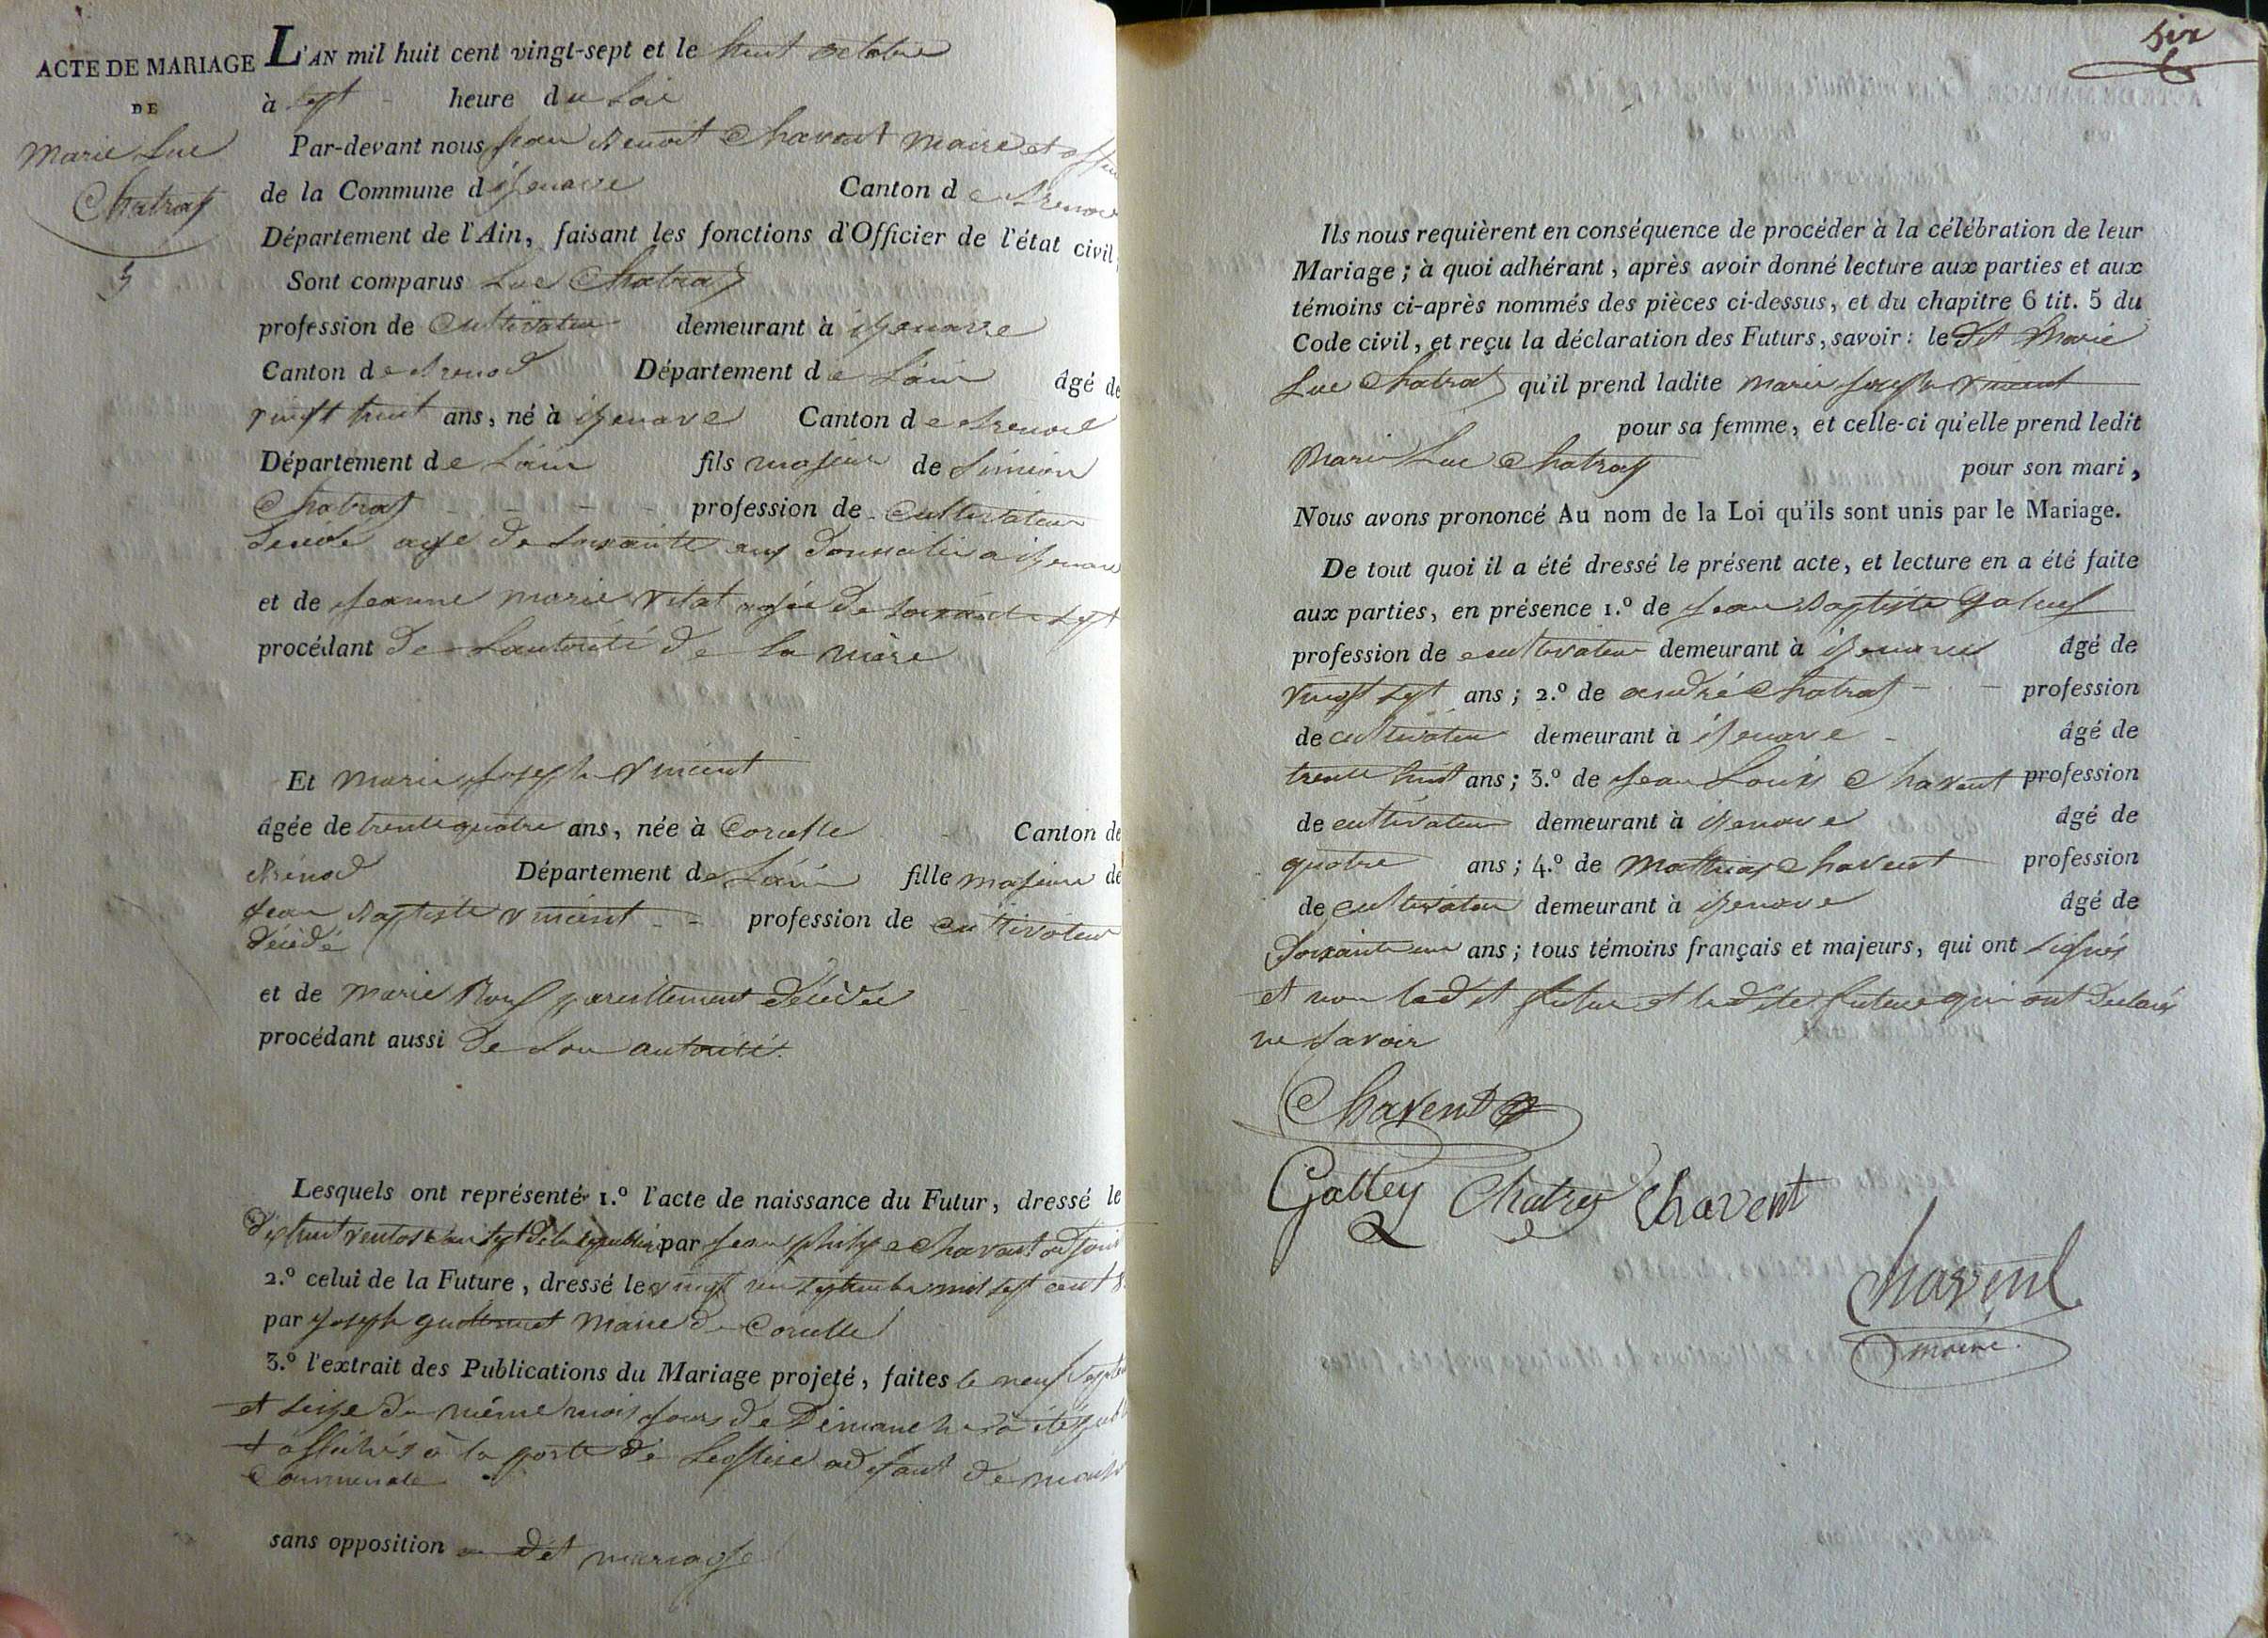 ACTE DE MARIAGE
DE
Marie Luc
Chatray
5
L'AN mil huit cent vingt-sept et le huit octobre
à sept heure du soir
Par-devant nous jean Benoit Chavent maire et
de la Commune d izenave Canton de Brenod
Département de l'Ain, faisant les fonctions d'Officier de l'état civil,
Sont comparus Luc Chatray
profession de Cultivateur demeurant à izenave
Canton de Brenod Département de Lain âgé de
vingt huit ans, né à izenave Canton de Brenod
Département de Lain fils majeur de Simeon
Chatray profession de Cultivateur
agé de soixante ans domicilié a izenave
et de jeanne marie vitat agée de soixante sept
procédant de Lautorité de la mère
Et marie joseph vincent
âgée de trente quatre ans, née à Corcelle Canton de
Brénod Département de Lain fille majeure de
jean Baptiste vincent profession de cultivateur
décédé
et de marie pareillement décédée
procédant aussi de son autorité.
Lesquels ont représenté 1.º l'acte de naissance du Futur, dressé le
dix huit ventose an sept de la republique par jean philipe Chavent adjoint
2.º celui de la Future, dressé le vingt un septembre mil sept cent
par joseph maire de Corcelle
3.º l'extrait des Publications du Mariage projeté, faites le neuf
et seize du même mois jours de Dimanche
et affichés à la porte de Leglise de
Communale
sans opposition dit mariage
six
Ils nous requièrent en conséquence de procéder à la célébration de leur
Mariage ; à quoi adhérant, après avoir donné lecture aux parties et aux
témoins ci-après nommés des pièces ci-dessus, et du chapitre 6 tit. 5 du
Code civil, et reçu la déclaration des Futurs, savoir : le dit Marie
Luc Chatray qu'il prend ladite marie joseph vincent
pour sa femme, et celle-ci qu'elle prend ledit
Marie Luc Chatray pour son mari,
Nous avons prononcé Au nom de la Loi qu'ils sont unis par le Mariage.
De tout quoi il a été dressé le présent acte, et lecture en a été faite
aux parties, en présence 1.º de jean Baptiste
profession de cultivateur demeurant à izenave âgé de
vingt sept ans ; 2.º de andré Chatray profession
de cultivateur demeurant à izenave âgé de
trente huit ans ; 3.º de jean Louis Chavent profession
de cultivateur demeurant à izenave âgé de
quatre ans ; 4.º de Mathias Chavent profession
de cultivateur demeurant à izenave âgé de
Soixante un ans ; tous témoins français et majeurs, qui ont signés
et non ledit futur et ladite future qui ont declarés
ne savoir
Chavent
Galley Chatrey Chavent
Chavent
maire.